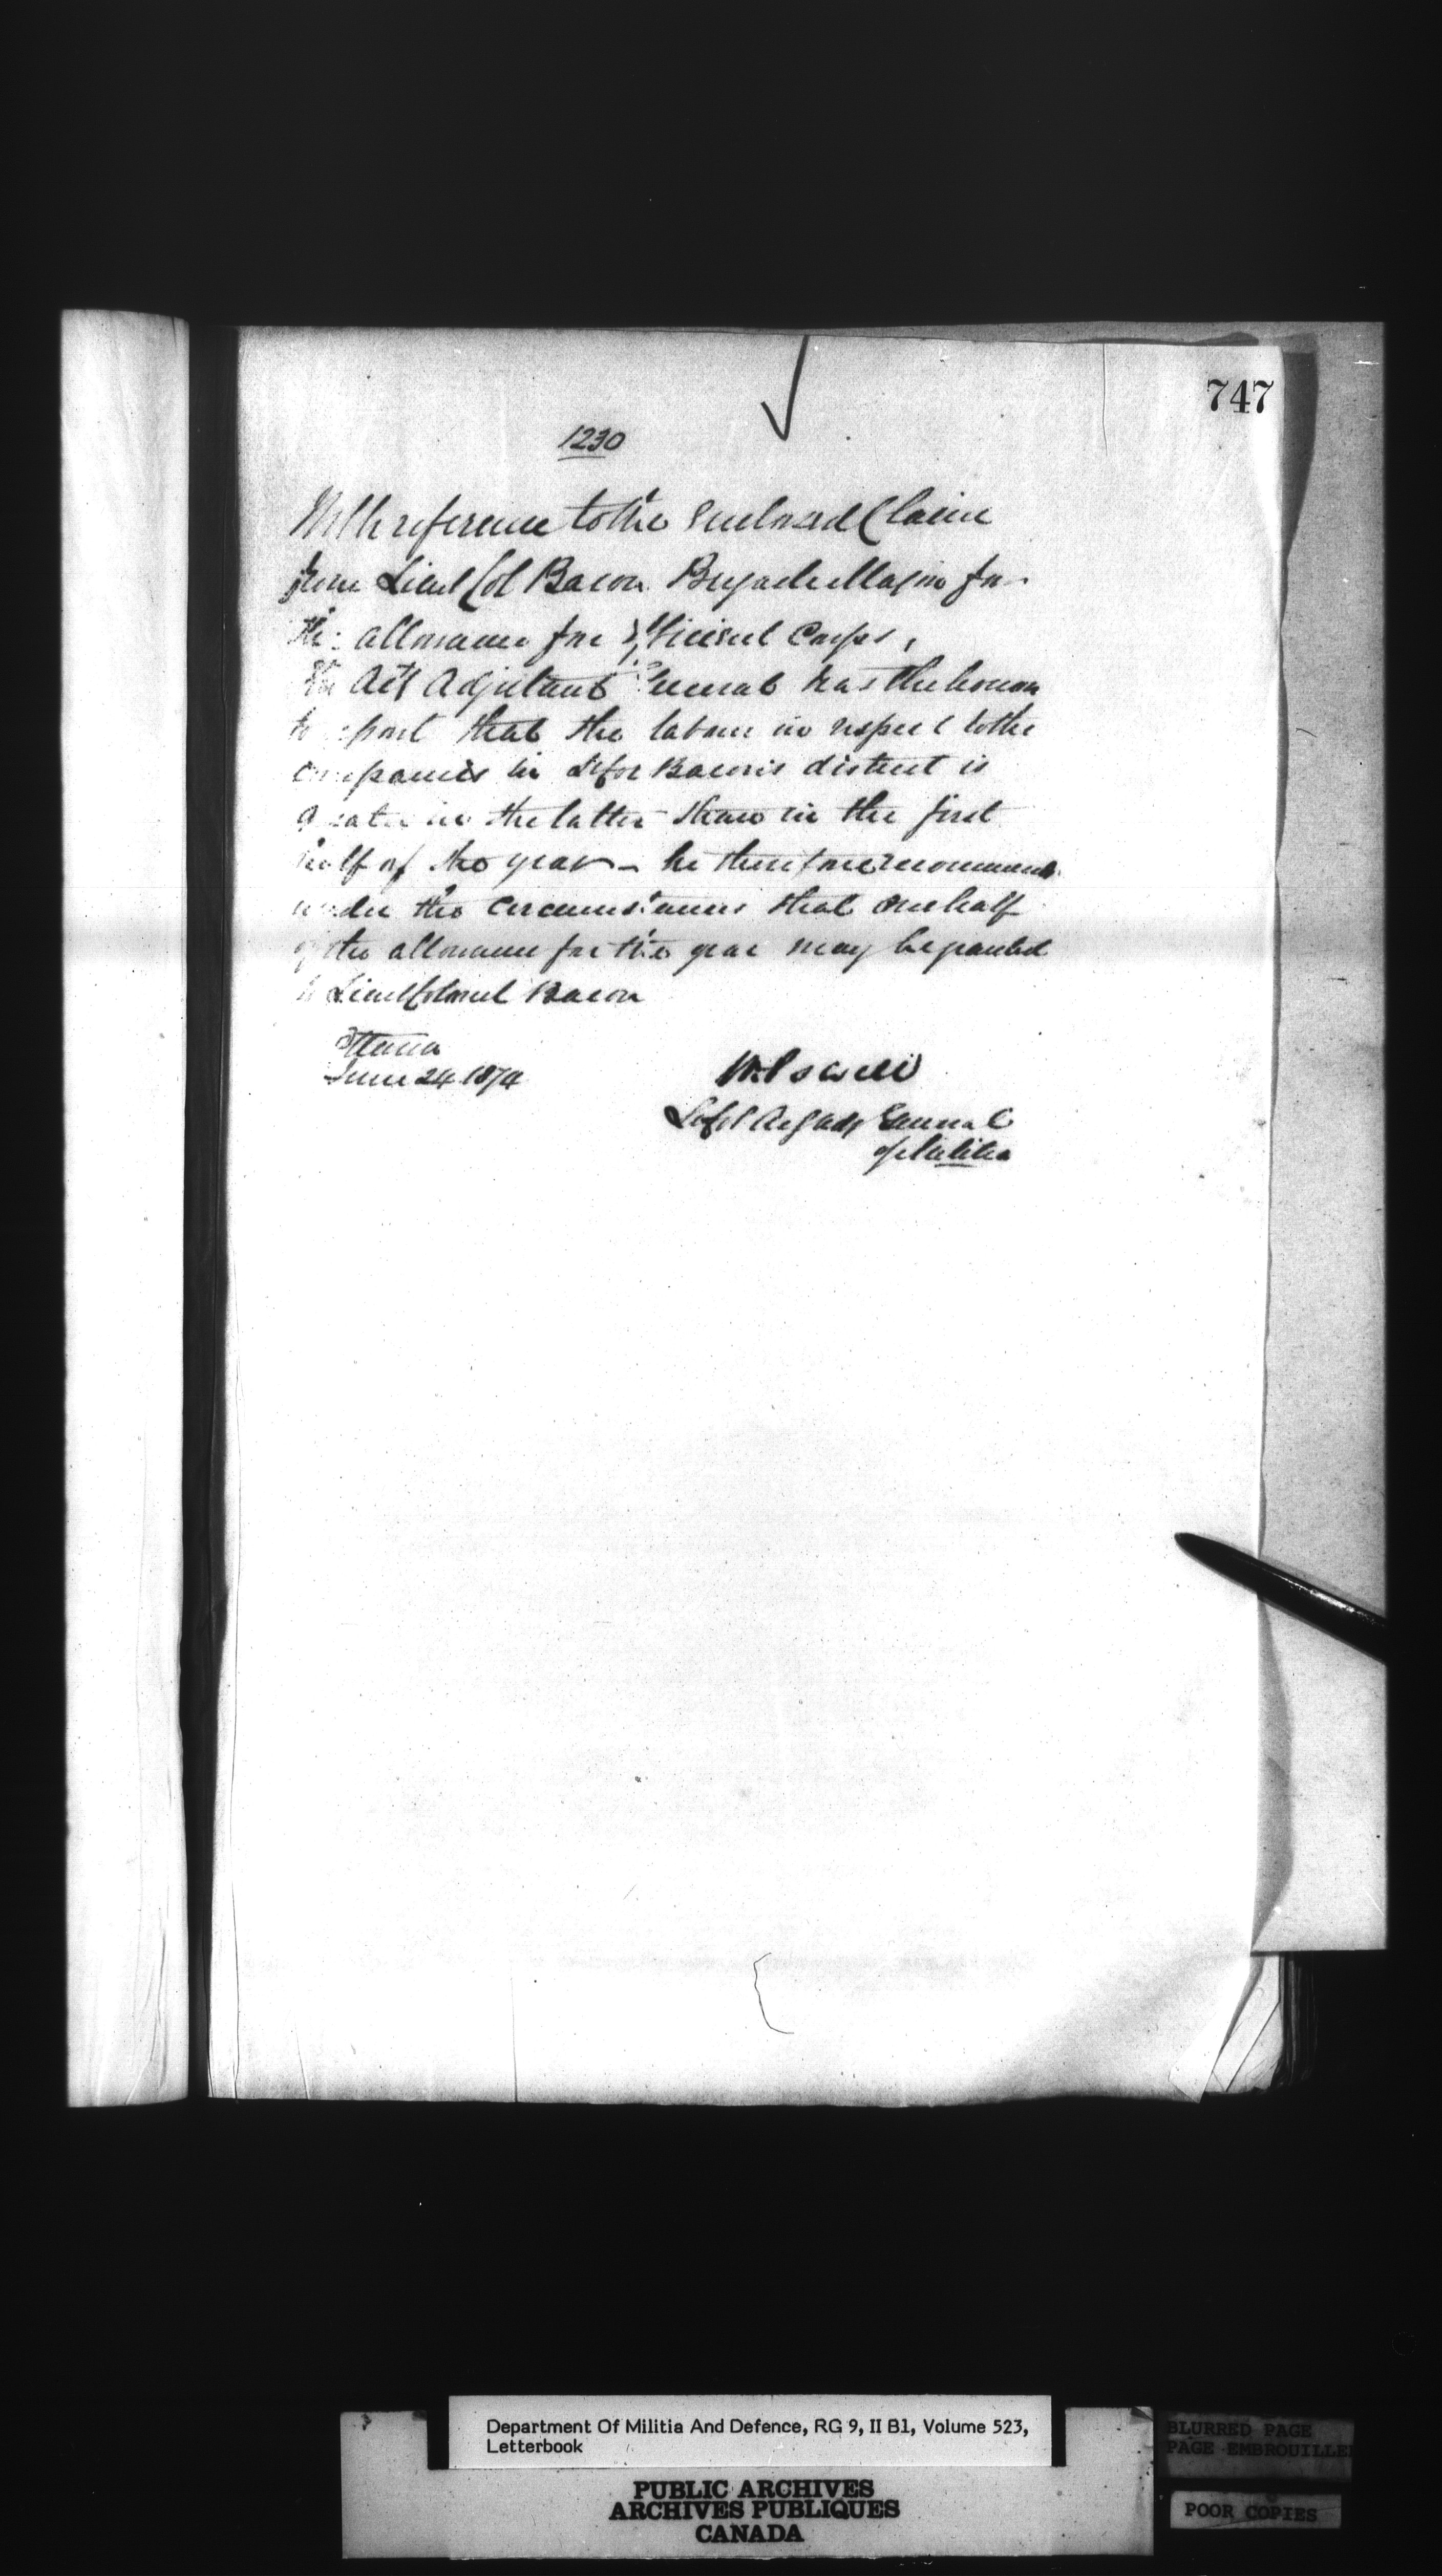 747
1230
With reference to the Enclosed Claim
from Lieut Col Bacon Brigade Major for
the allowance for Corps,
The Actg Adjutant General has the honor
to report that the labour in respect to the
companies in Lt Col Bacon's district is
greater in the latter than in the first
half of the year - he therefore recommends
under the circumstances that one half
of the allowance for the year may be granted
to Lieut Colonel Bacon
Ottawa
June 24 1874
W Powell
Lt Col Actg Adjt General
of Militia
Department Of Militia And Defence, RG 9, II B1, Volume 523,
Letterbook
PUBLIC ARCHIVES
ARCHIVES PUBLIQUES
CANADA
BLURRED PAGE
PAGE EMBROUILLE
POOR COPIES